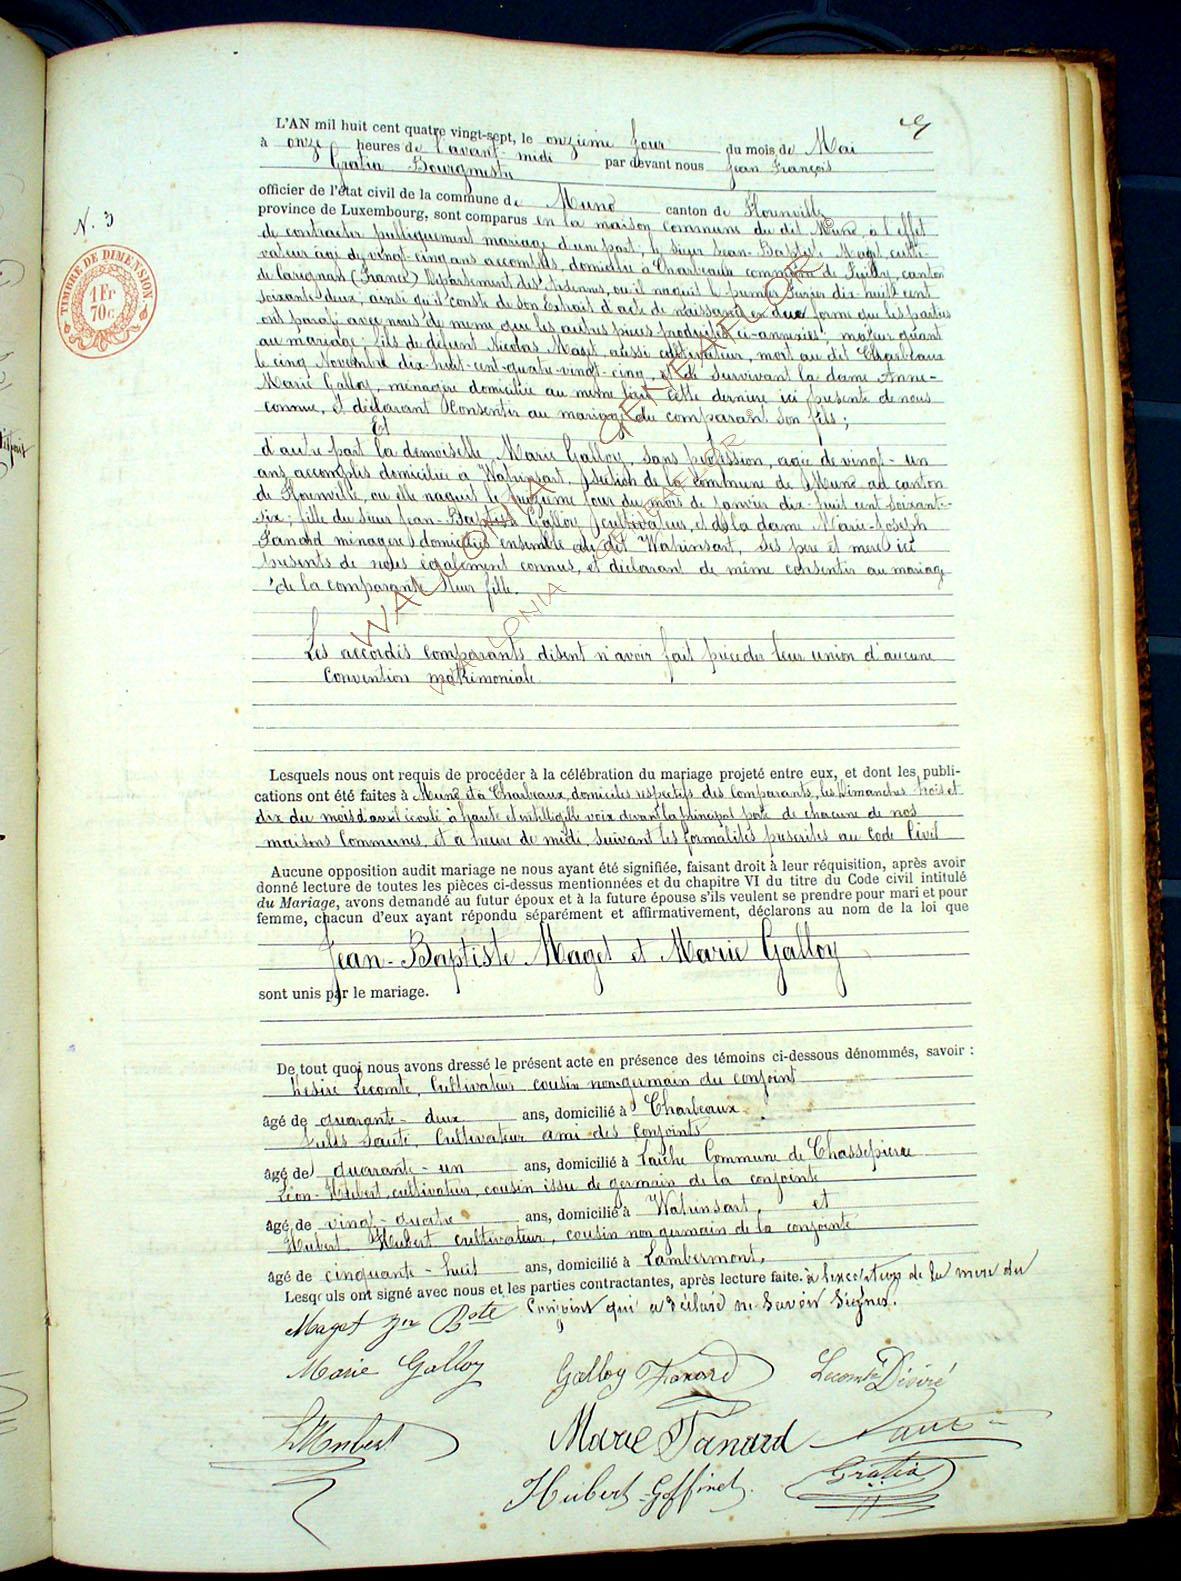 L'AN mil huit cent quatre vingt-sept, le onzième jour du mois de Mai
à onze heures de l'avant-midi par devant nous Jean François
Gratia Bourgmestre
officier de l'état civil de la commune de Muno canton de Florenville
province de Luxembourg, sont comparus en la maison commune du dit Muno, à l'effet
de contracter publiquement mariage d'une part; le sieur Jean-Baptiste Maget, culti-
N. 3
vateur âgé de vingt-cinq ans accomplis, domicilié à Charbeaux commune de Puilly, canton
TIMBRE DE DIMENSION
1 Fr
70 c.
de Carignan (France) Département des Ardennes, où il naquit le premier dix-huit cent
soixante deux, ainsi qu'il conste de son Extrait d'acte de naissance en due forme que les parties
ont parafé avec nous de meme que les autres pièces produites ci-annexées; majeur quant
au mariage; fils du défunt Nicolas Maget, aussi cultivateur, mort au dit Charbeaux
le cinq Novembre dix-huit-cent-quatre-vingt-cinq, et de survivant la dame Anne-
Marie Galloy, ménagère domiciliée au même lieu cette dernière ici présente de nous
connue, et déclarant consentir au mariage du comparant son fils;
Et
d'autre part la demoiselle Marie Galloy, sans profession, agée de vingt-un
ans accomplis domiciliée à Watrinsart, section de la commune de Muno ad canton
de Florenville, où elle naquit le jour du mois de Janvier dix-huit cent soixante-
six; fille du sieur Jean-Baptiste Galloy cultivateur, et de la dame Marie-Joseph
Fanard ménagère domiciliés ensemble au dit Watrinsart, ses père et mère ici
présents de nous également connus, et déclarant de même consentir au mariage
de la comparante leur fille.
WALLONIA GENEAFLOR ©
Les accordés comparants disent n'avoir fait précéder leur union d'aucune
convention matrimoniale
Lesquels nous ont requis de procéder à la célébration du mariage projeté entre eux, et dont les publi-
cations ont été faites à Muno et à Charbeaux, domiciles respectifs des Comparants, les Dimanches trois et
dix du mois d'avril écoulé à haute et intelligible voix devant la principal porte de chacune de nos
maisons Communes, et à heure de midi, suivant les formalités prescrites au Code Civil
Aucune opposition audit mariage ne nous ayant été signifiée, faisant droit à leur réquisition, après avoir
donné lecture de toutes les pièces ci-dessus mentionnées et du chapitre VI du titre du Code civil intitulé
du Mariage, avons demandé au futur époux et à la future épouse s'ils veulent se prendre pour mari et pour
femme, chacun d'eux ayant répondu séparément et affirmativement, déclarons au nom de la loi que
Jean-Baptiste Maget et Marie Galloy
sont unis par le mariage.
De tout quoi nous avons dressé le présent acte en présence des témoins ci-dessous dénommés, savoir :
Désiré Lecomte, Cultivateur cousin non germain du conjoint
âgé de quarante-deux ans, domicilié à Charbeaux
Cultivateur ami des conjoints
âgé de quarante-un ans, domicilié à Laiche Commune de Chassepierre
Léon Hubert, cultivateur, cousin issu de germain de la conjointe
âgé de vingt-quatre ans, domicilié à Watrinsart, et
Hubert, Hubert cultivateur, cousin non germain de la conjointe
âgé de cinquante-huit ans, domicilié à Lambermont,
Lesquels ont signé avec nous et les parties contractantes, après lecture faite. à l'exception de la mère du
conjoint qui a déclaré ne savoir signer.
Maget Jn Bste
Marie Galloy Galloy Fanard Lecomte Désiré
L Hubert Marie Fanard
Hubert Goffinet Gratia